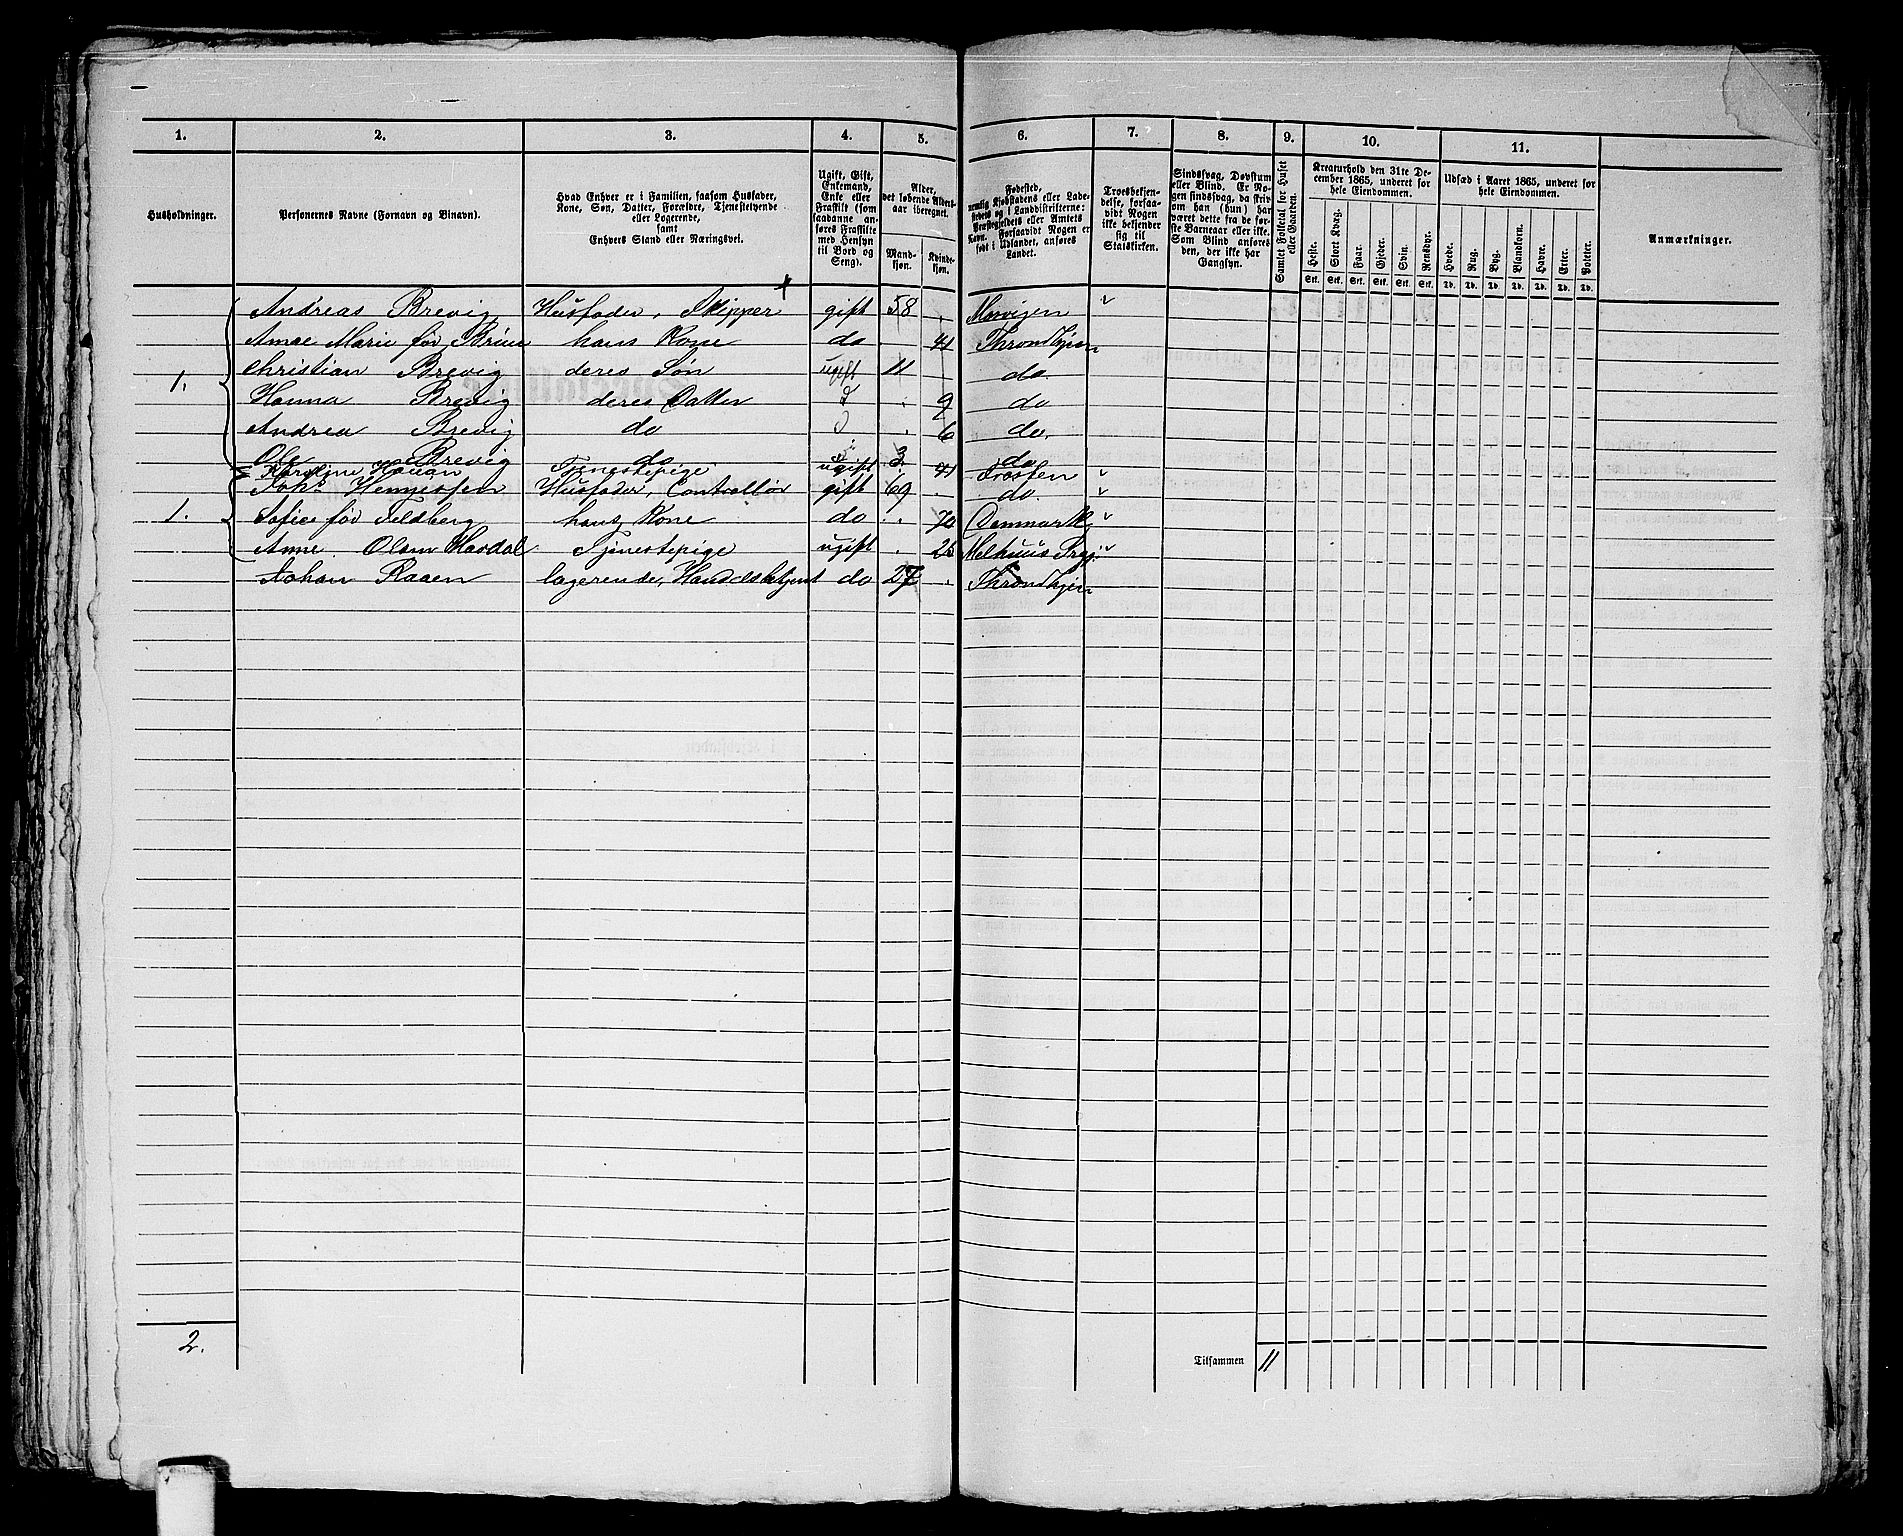 1. 2. 3. 4. 5. 6. 7. 8. 9. 10. 11.
Husholdninger.
Personernes Navne (Fornavn og Binavn).
Hvad Enhver er i Familien, saasom Husfader,
Kone, Søn, Datter, Forældre, Tjenestetyende
eller Logerende,
samt
Enhvers Stand eller Næringsvei.
Ugift, Gift,
Enkemand,
Enke eller
Fraskilt (som
saadanne an-
føres Fraskilte
med Hensyn
til Bord og
Seng).
Alder,
det løbende Alders-
aar iberegnet.
Mand-
kjøn.
Kvinde-
kjøn.
Fødested,
nemlig Kjøbstadens eller Lade-
stedets og i Landdistrikterne:
Præstegjeldets eller Amtets
Navn. Forsaavidt Nogen er
født i Udlandet, anføres
Landet.
Troesbekjen-
delse, forsaa-
vidt Nogen
ikke bekjender
sig til
Statskirken.
Sindssvag, Døvstum
eller Blind. Er No-
gen sindssvag, da skriv
om han (hun) har
været dette fra de før-
ste Barneaar eller ikke.
Som Blind anføres
den, der ikke har
Gangsyn.
Samlet Folketal for Huset
eller Gaarden.
Kreaturhold den 31te De-
cember 1865, underet for
hele Eiendommen.
Heste. Stort Kvæg. Faar. Gjeder. Svin. Rensdyr.
Stk. Stk. Stk. Stk. Stk. Stk.
Udsæd i Aaret 1865, underet for
hele Eiendommen.
Hvede. Rug. Byg. Blandkorn. Havre. Erter. Poteter.
Td. Td. Td. Td. Td. Td. Td.
Anmærkninger.
Andreas Brevig Husfader, Skipper gift 58
Anne Marie fød Bruun hans Kone do 41 Throndhjem
1. Christian Brevig deres Søn ugift 11 do.
Hanna Brevig deres Datter 9 do
Andrea Brevig do 6 do.
Ole Brevig do 3 do
Karoline Hauan Tjenestepige ugift 41
Henrichsen Husfader, Controllør gift 69 do.
1. Sofie fød Feldberg hans Kone do 70 Danmark
Anne Olsen Havdal Tjenestepige ugift Melhuus Prgj.
Johan Raaen logerende, Handelsbetjent do 27 Throndhjem
2.
Tilsammen 11